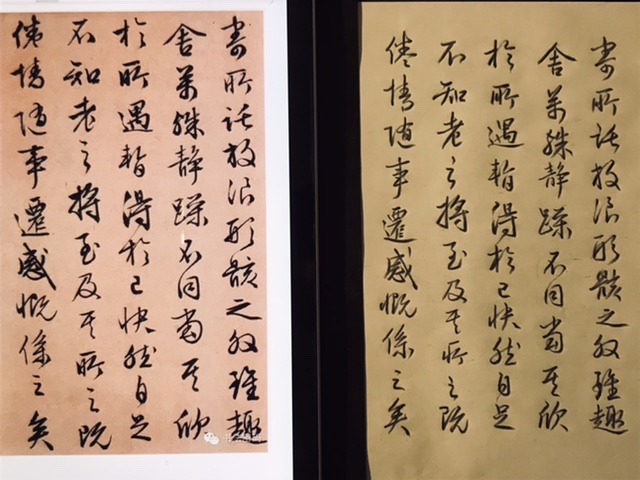 寄所託放浪形骸之外雖趣
舍萬殊静躁不同當其欣
於所遇暫得於己快然自足
不知老之將至及其所之既
惓情随事遷感慨係之矣
寄所託放浪形骸之外雖趣
舍萬殊静躁不同當其欣
於所遇暫得於己快然自足
不知老之將至及其所之既
惓情随事遷感慨係之矣